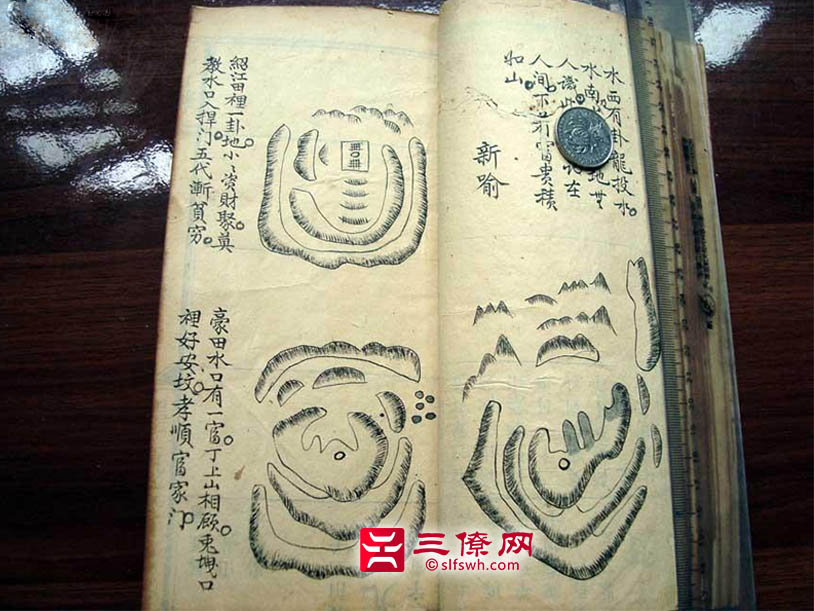 水西有卦龍投水。
水南 地世
人識此 在
人间。不出富貴積
如山。
新喻
紹江田裡一卦地。小〻資財聚真。
教水口入捍门。五代漸貧穷。
豪田水口有一官。丁上山相顾。兎 口
裡好安坟。孝順官家门。
三僚网
©slfswh.com